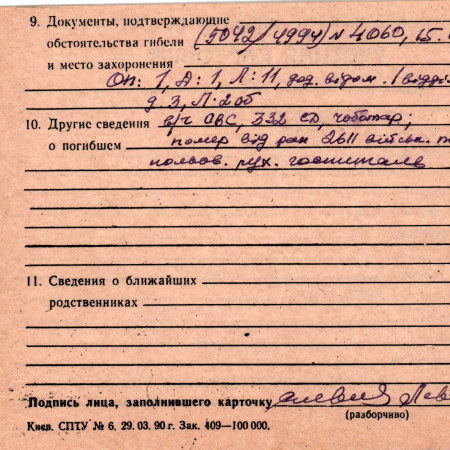 9. Документы, подтверждающие
обстоятельства гибели (5042/4994) N 4060, 15.
и место захоронения
Оп: 1, Д: 1, Л: 11, дод. відом.
д 3, Л: 2 об
10. Другие сведения в/ч СВС, 332 СД, чоботар;
о погибшем помер від ран 2611 військ.
польов. рух. госпиталь
11. Сведения о ближайших
родственниках
Подпись лица, заполнившего карточку
(разборчиво)
Киев. СПТУ № 6. 29. 03. 90 г. Зак. 409—100 000.